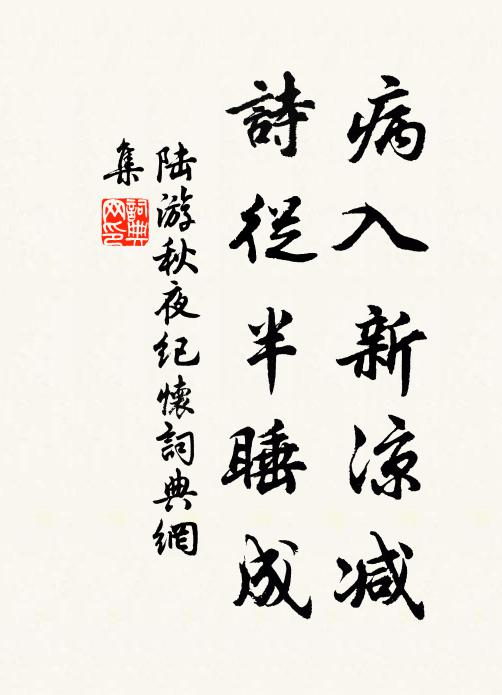 病入新涼减
詩從半睡成
陸游秋夜纪懷詞典網
集
詞典
网印